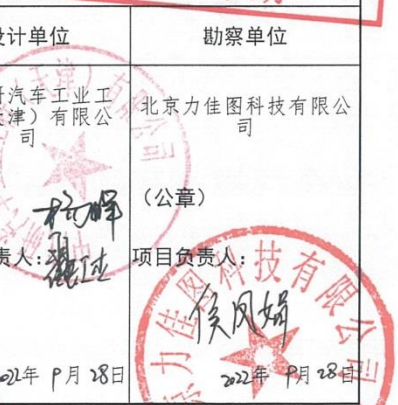 设计单位
勘察单位
汽车工业工
津）有限公
司
北京力佳图科技有限公
司
（公章）
责人：
项目负责人：
侯凤娟
2022年 9月 28日
2022年 9月 28日
力佳图科技有限公司